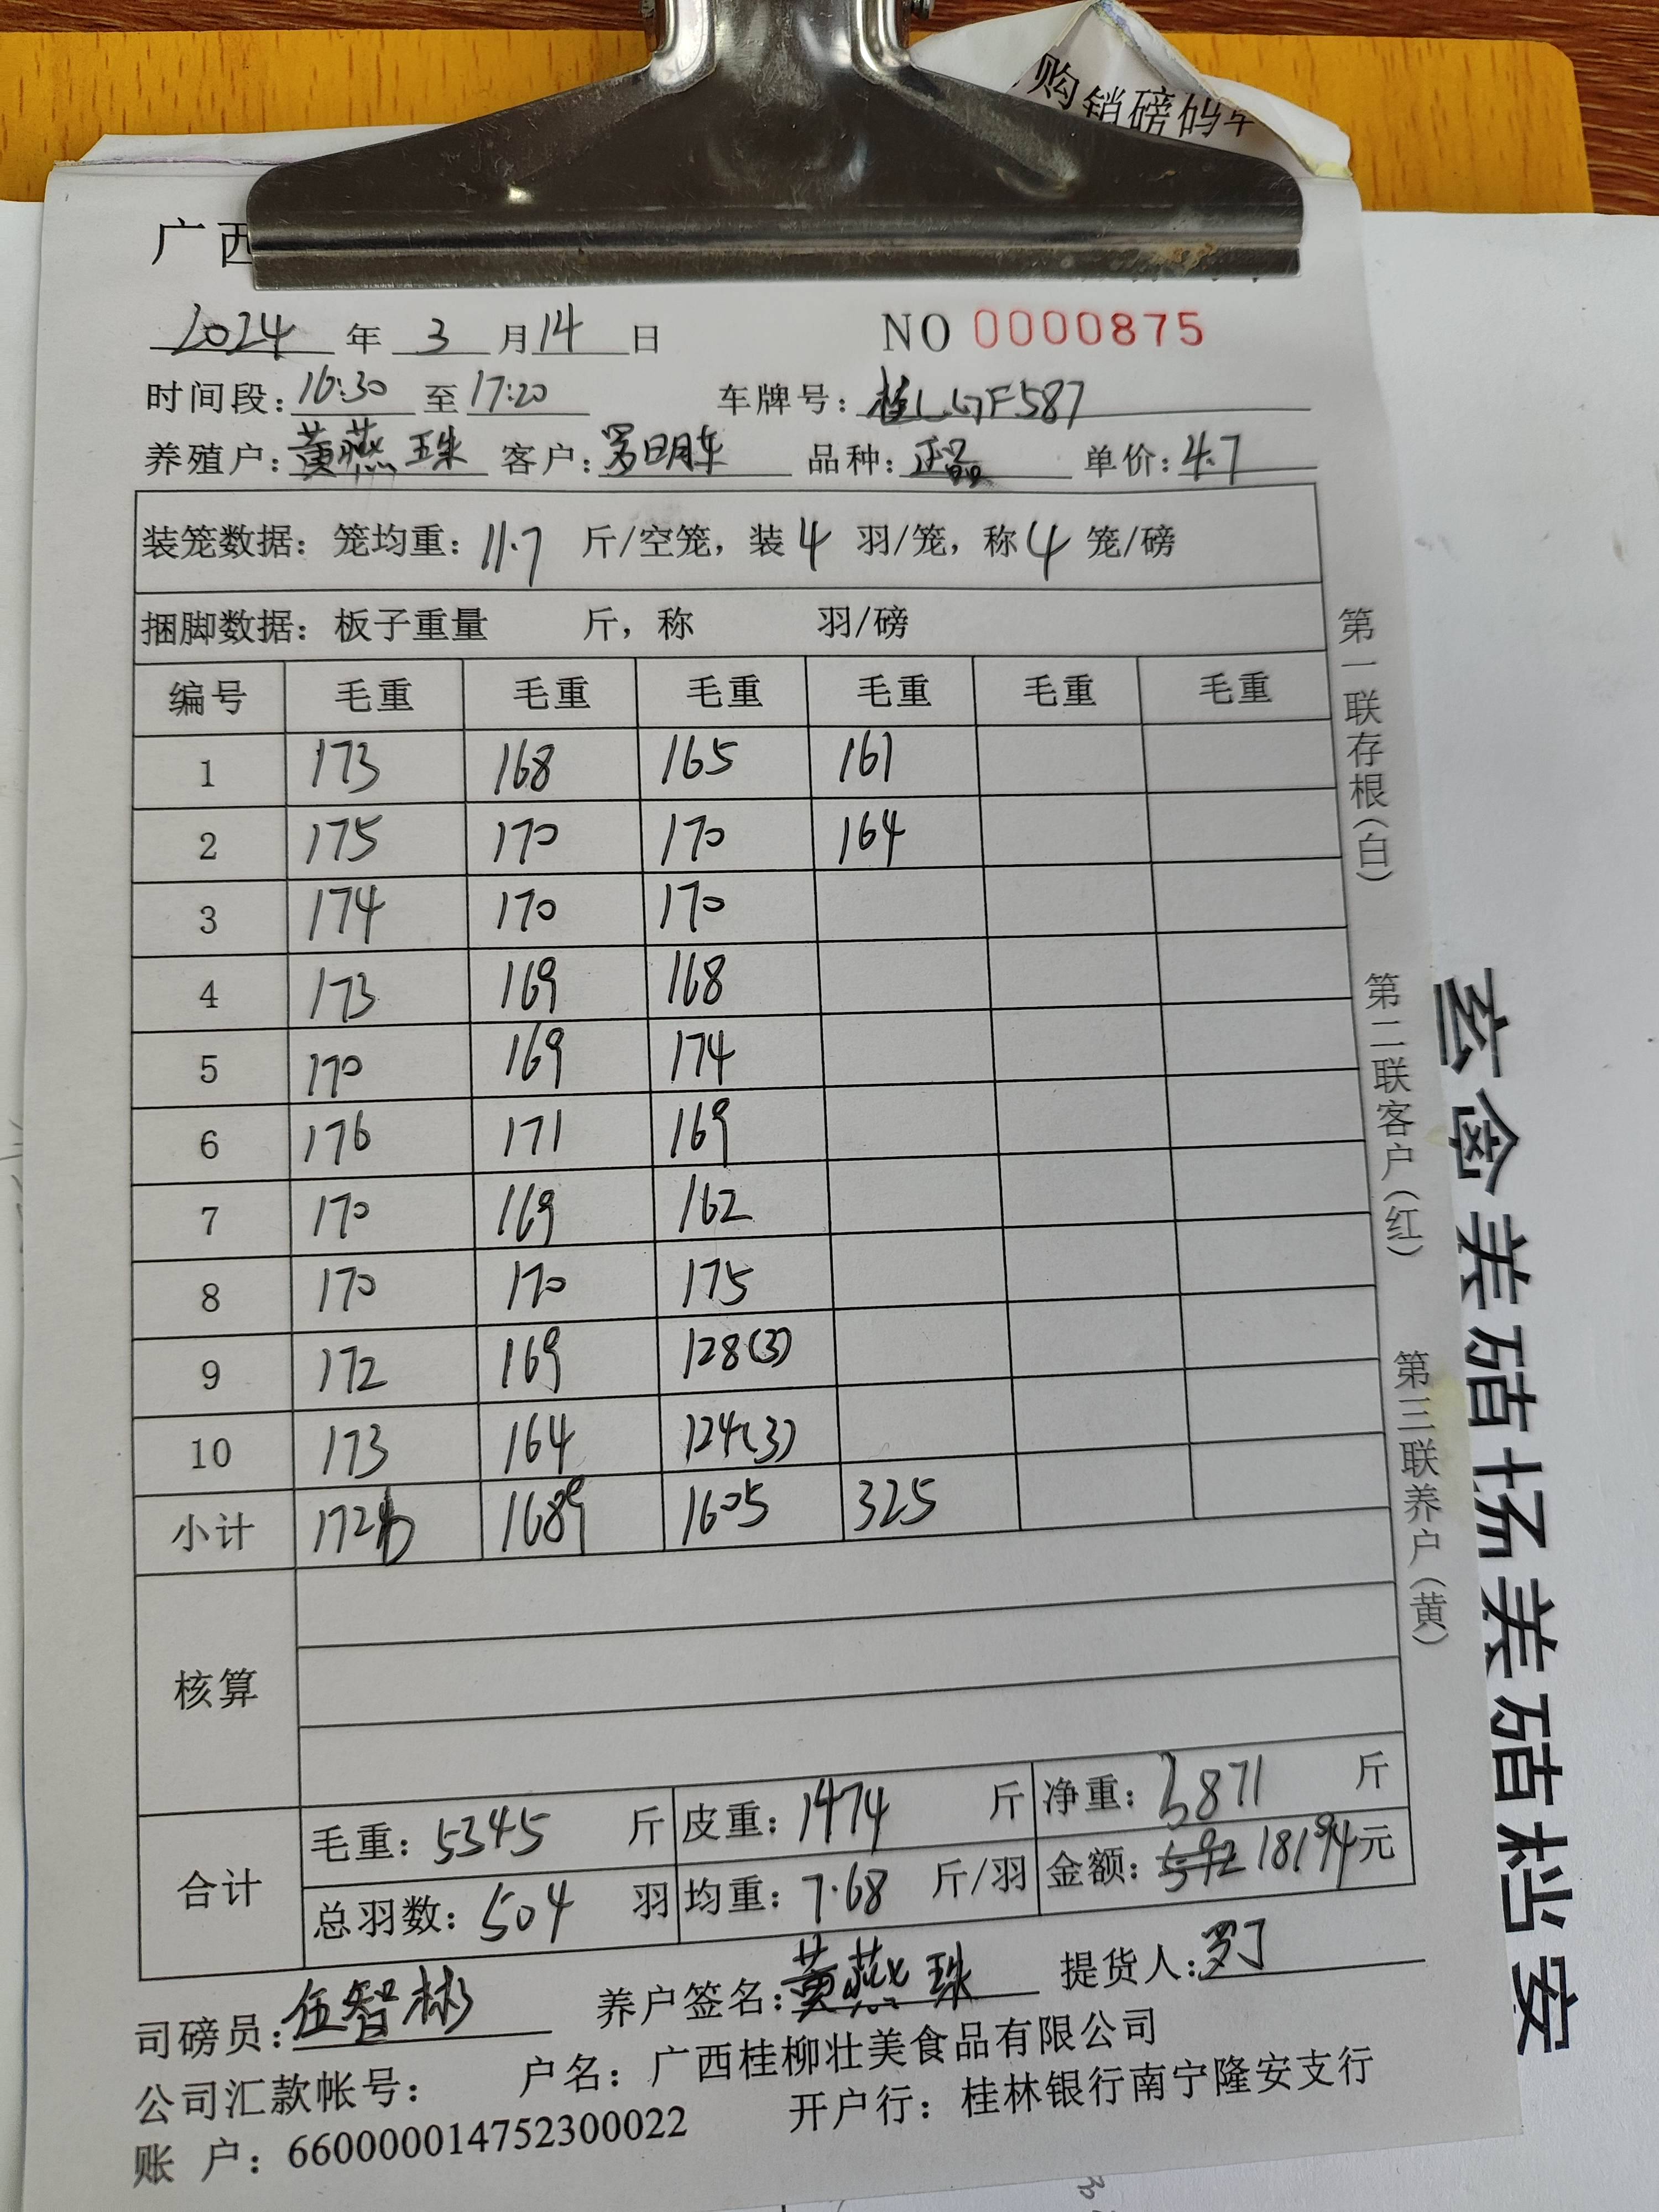 购销磅码单
广西
2024 年 3 月 14 日 NO 0000875
时间段: 16:30 至 17:20 车牌号: 桂LGF587
养殖户: 黄燕珠 客户: 罗明车 品种: 正品 单价: 4.7
装笼数据: 笼均重: 11.7 斤/空笼, 装 4 羽/笼, 称 4 笼/磅
捆脚数据: 板子重量 斤, 称 羽/磅
编号 毛重 毛重 毛重 毛重 毛重 毛重
1 173 168 165 161
2 175 170 170 164
3 174 170 170
4 173 169 168
5 170 169 174
6 176 171 169
7 170 169 162
8 170 170 175
9 172 169 128(3)
10 173 164 124(3)
小计 1726 1689 1605 325
核算
合计 毛重: 5345 斤 皮重: 1474 斤 净重: 3871 斤
总羽数: 504 羽 均重: 7.68 斤/羽 金额: 18194元
司磅员: 伍智彬 养户签名: 黄燕珠 提货人: 罗
公司汇款帐号: 户名: 广西桂柳壮美食品有限公司
账 户: 660000014752300022 开户行: 桂林银行南宁隆安支行
第一联存根(白) 第二联客户(红) 第三联养户(黄)